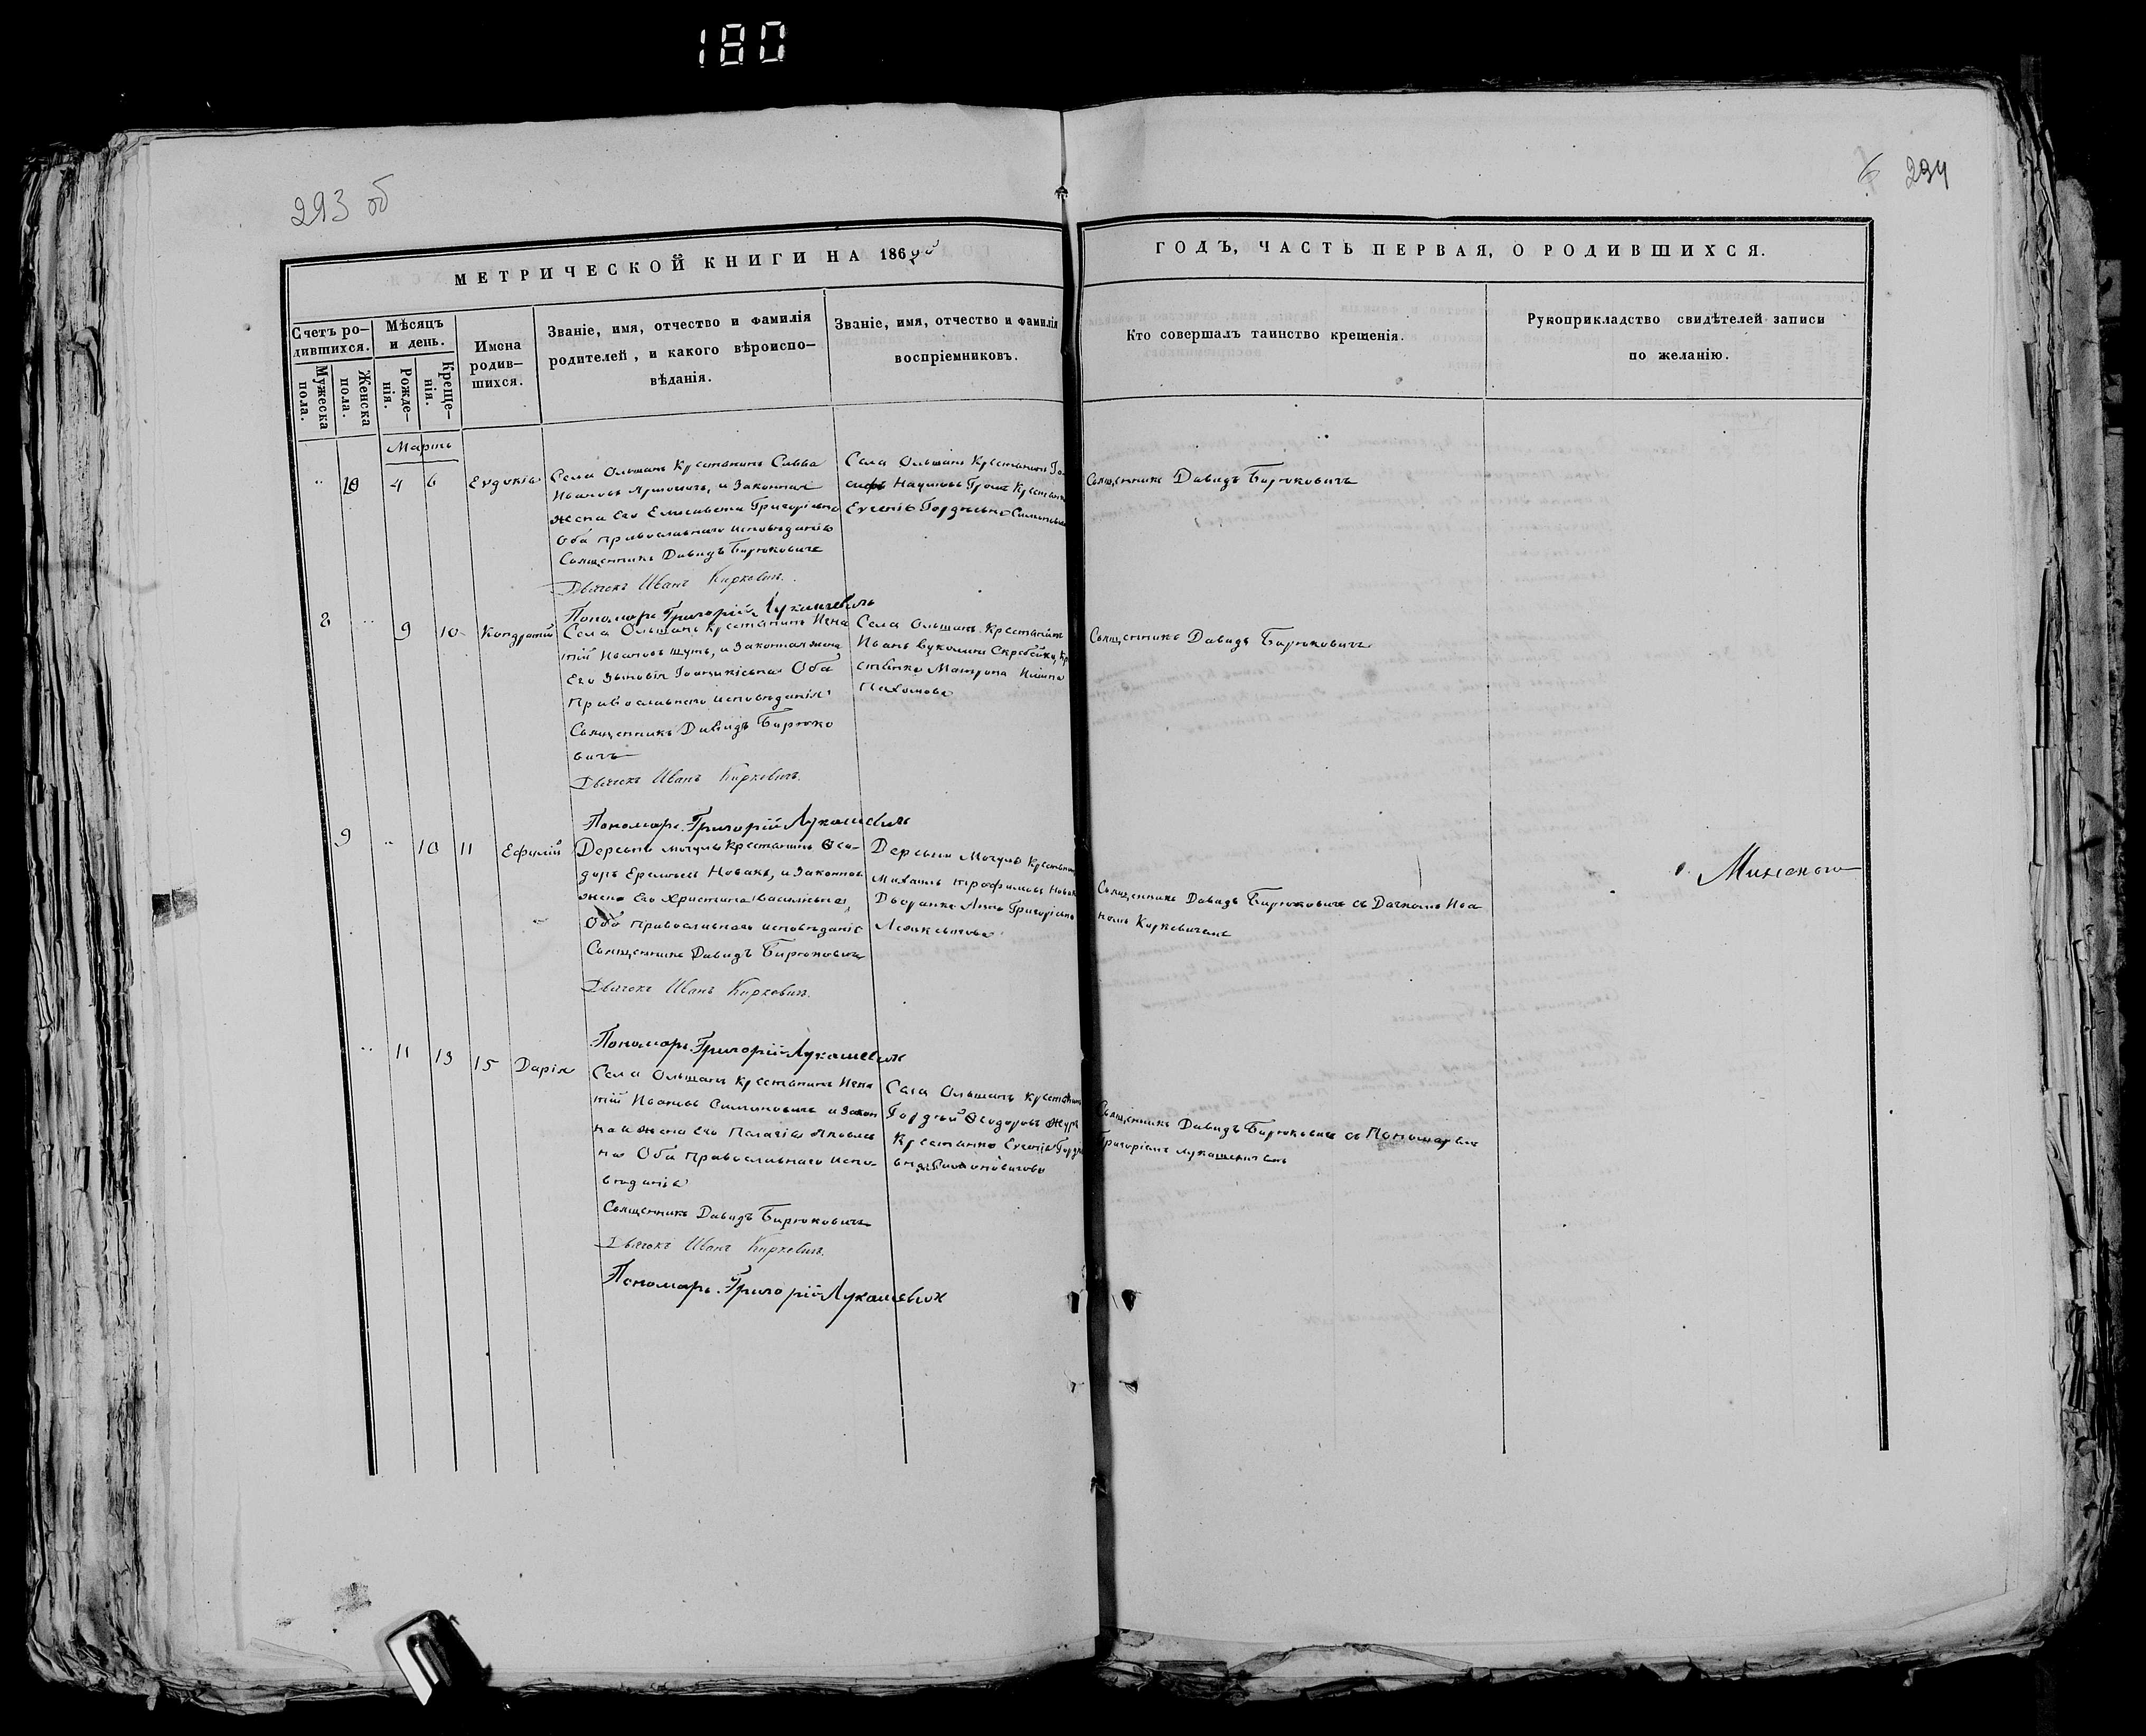 180
293 об
6 294
МЕТРИЧЕСКОЙ КНИГИ НА 186
ГОДЪ, ЧАСТЬ ПЕРВАЯ, О РОДИВШИХСЯ.
Счетъ ро-
дившихся.
Мужеска
пола.
Женска
пола.
Мѣсяцъ
и день.
Рожде-
нія.
Креще-
нія.
Имена
родив-
шихся.
Званіе, имя, отчество и фамилія
родителей, и какого вѣроиспо-
вѣданія.
Званіе, имя, отчество и фамилія
воспріемниковъ.
Кто совершалъ таинство крещенія.
Рукоприкладство свидѣтелей записи
по желанію.
Мартъ
10 4 6 Евдокія
Села Ольшанъ Крестьянинъ Савва
Ивановъ и Законная
жена Его Елисавета Григоріева
Оба православнаго исповѣданія
Священникъ Давидъ Бирюковичъ
Дьячокъ Иванъ Киркевичъ.
Пономарь Григорій Лукашевичъ
Села Ольшанъ Крестьянинъ Іо-
сифъ Наумовъ Крестьянка
Евгенія Гордѣева
Священникъ Давидъ Бирюковичъ
8 9 10 Кондратій
Села Ольшанъ Крестьянинъ Игна
тій Ивановъ Шутъ, и Законная жена
Его Зѣновія Іоаникіева Оба
Православнаго исповѣданія
Священникъ Давидъ Бирюко
вичъ
Дьячокъ Иванъ Киркевичъ.
Пономарь Григорій Лукашевичъ
Села Ольшанъ Крестьянинъ
Иванъ Скребейко, Кр
стьянка Матрона
Пахомова
Священникъ Давидъ Бирюковичъ
9 10 11 Ефимій
Деревни Мочуль Крестьянинъ Ѳео-
доръ Новакъ, и Законная
жена Его Христина Васильева,
Оба православнаго исповѣданіе
Священникъ Давидъ Бирюковичъ
Дьячокъ Иванъ Киркевичъ.
Пономарь Григорій Лукашевичъ
Деревни Мочуль Крестьянинъ
Михаилъ Трофимовъ Новакъ
Дворянка Анна Григоріева
Священникъ Давидъ Бирюковичъ съ Дячкомъ Ива
номъ Киркевичемъ
11 13 15 Дарія
Села Ольшанъ Крестьянинъ Игна
тій Ивановъ Симоновичъ и Закон
ная жена Его Пелагія Яковлев
на Оба Православнаго испо-
вѣданія
Священникъ Давидъ Бирюковичъ
Дьячокъ Иванъ Киркевичъ.
Пономарь Григорій Лукашевичъ
Села Ольшанъ Крестьянинъ
Гордѣй Ѳеодоровъ
Крестьянка Евгенія Гордѣ
Священникъ Давидъ Бирюковичъ съ Пономаремъ
Григоріемъ Лукашевичемъ